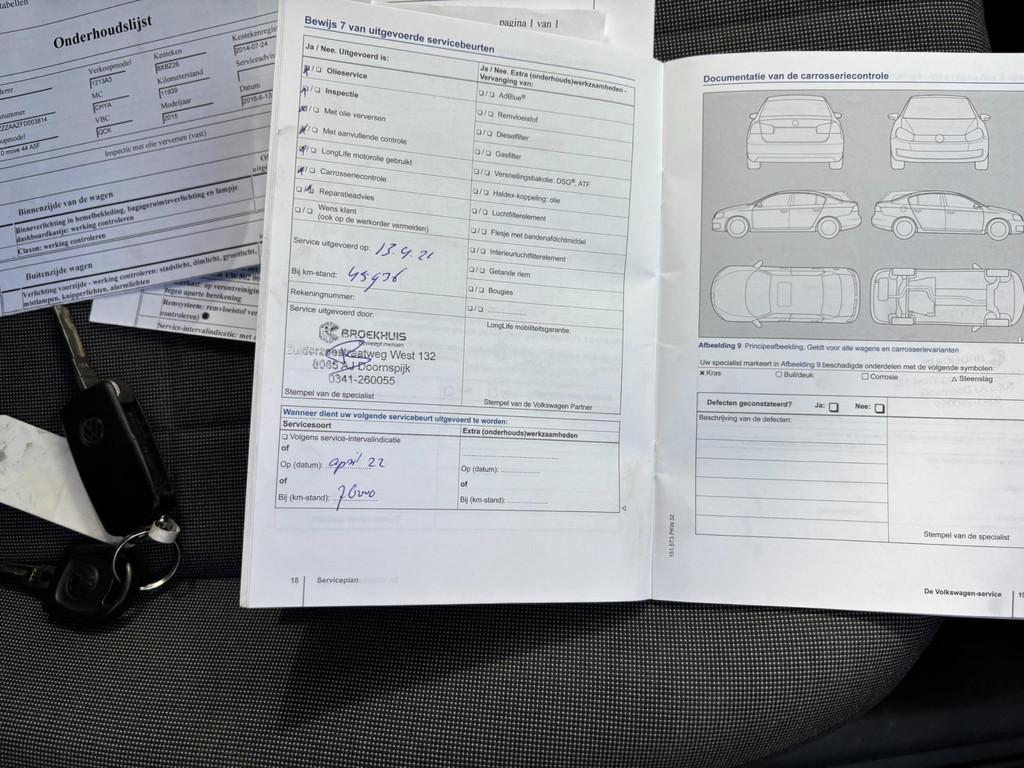 tabellen
Onderhoudslijst
Verkoopmodel
1213A3
MC
CHYA
VBC
QCK
Kenteken
8XBZ26
Kilometerstand
11939
Modeljaar
2015
2014-07-24
Datum
0 move 44 A5F
Inspectie met olie verversen (vast)
Binnenzijde van de wagen
Binneverlichting in hemelbekleding, bagageruimteverlichting en lampje
dashboardkastje: werking controleren
Claxon: werking controleren
Buitenzijde wagen
Verlichting voorzijde - werking controleren: stadslicht, dimlicht, grootlicht,
mistlampen, knipperlichten, alarmlichten
tegen aparte berekening
Remsysteem: remvloeistof
controleren)
Service-intervalindicatie: met
pagina 1 van 1
Bewijs 7 van uitgevoerde servicebeurten
Ja / Nee. Uitgevoerd is:
Olieservice
Inspectie
Met olie verversen
Met aanvullende controle
LongLife motorolie gebruikt
Carrosseriecontrole
Reparatieadvies
Wens klant
(ook op de werkorder vermelden)
Service uitgevoerd op: 13.4.21
Bij km-stand: 45936
Rekeningnummer:
Service uitgevoerd door:
BROEKHUIS
beweegt mensen
Zuiderzeestraatweg West 132
8085 AJ Doornspijk
0341-260055
Stempel van de specialist
Ja / Nee. Extra (onderhouds)werkzaamheden -
Vervanging van:
AdBlue®
Remvloeistof
Dieselfilter
Gasfilter
Versnellingsbakolie: DSG®, ATF
Haldex-koppeling: olie
Luchtfilterelement
Flesje met bandenafdichtmiddel
Interieurluchtfilterelement
Getande riem
Bougies
LongLife mobiliteitsgarantie:
Stempel van de Volkswagen Partner
Wanneer dient uw volgende servicebeurt uitgevoerd te worden:
Servicesoort
Volgens service-intervalindicatie
of
Op (datum): april 22
of
Bij (km-stand):
Extra (onderhouds)werkzaamheden
Op (datum):
of
Bij (km-stand):
18 Serviceplan
Documentatie van de carrosseriecontrole
Afbeelding 9 Principeafbeelding. Geldt voor alle wagens en carrosserievarianten
Uw specialist markeert in Afbeelding 9 beschadigde onderdelen met de volgende symbolen:
× Kras ○ Buil/deuk □ Corrosie △ Steenslag
Defecten geconstateerd? Ja: Nee:
Beschrijving van de defecten:
Stempel van de specialist
151.5T3.PKW.32
De Volkswagen-service 19